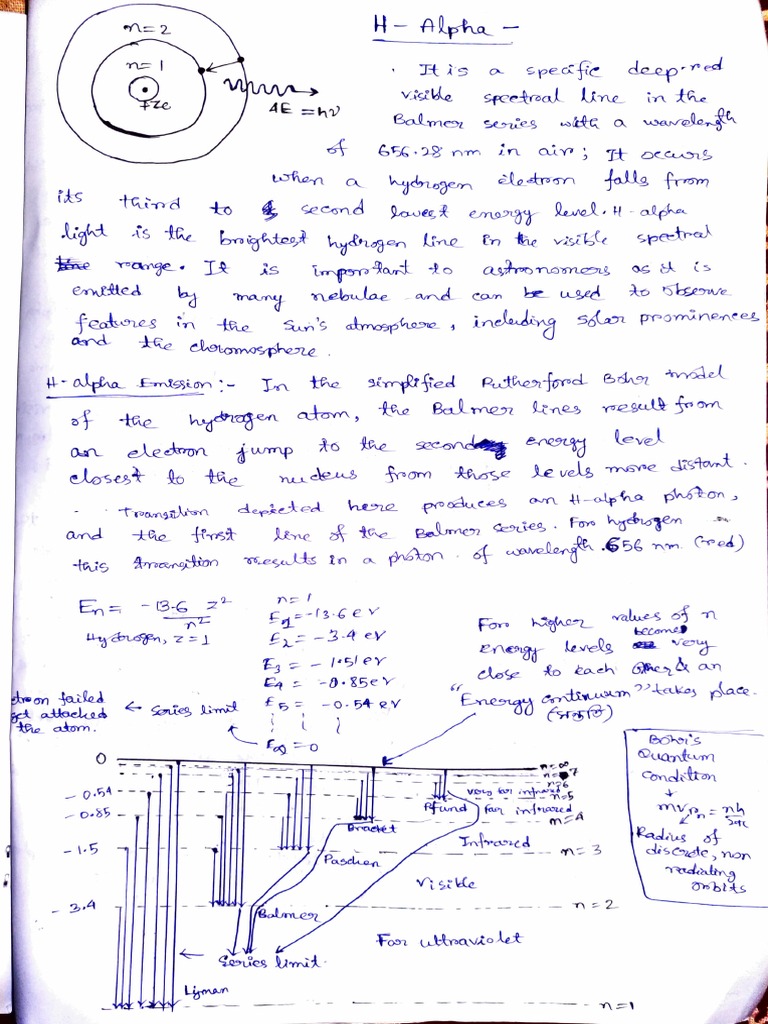 H- Alpha -
n=2
n=1
+ze
ΔE = hν
. It is a specific deep-red
visible spectral line in the
Balmer series with a wavelength
of 656.28 nm in air; It occurs
when a hydrogen electron falls from
its third to second lowest energy level. H-alpha
light is the brightest hydrogen line in the visible spectral
range. It is important to astronomers as it is
emitted by many nebulae and can be used to observe
features in the Sun's atmosphere, including solar prominences
and the chromosphere.
H-alpha Emission :- In the simplified Rutherford Bohr model
of the hydrogen atom, the Balmer lines result from
an electron jump to the second energy level
closest to the nucleus from those levels more distant.
- Transition depicted here produces an H-alpha photon,
and the first line of the Balmer series. For hydrogen
this transition results in a photon of wavelength 656 nm (red)
En = -13.6 z²/n²
Hydrogen, z=1
n=1
E1 = -13.6 eV
E2 = -3.4 eV
E3 = -1.51 eV
E4 = -0.85 eV
E5 = -0.54 eV
E∞ = 0
For higher values of n
energy levels becomes very
close to each other & an
"Energy continuum" takes place.
(সন্ততি)
ctron failed
get attached
the atom.
← Series limit
0
-0.54
-0.85
-1.5
-3.4
n=∞
n=7
n=6
n=5
n=4
n=3
n=2
n=1
very far infrared
Pfund
far infrared
Bracket
Infrared
Paschen
Visible
Balmer
Far ultraviolet
Series limit
Lyman
Bohr's
Quantum
Condition
↓
mvrn = nh/2π
Radius of
discrete, non
radiating
orbits